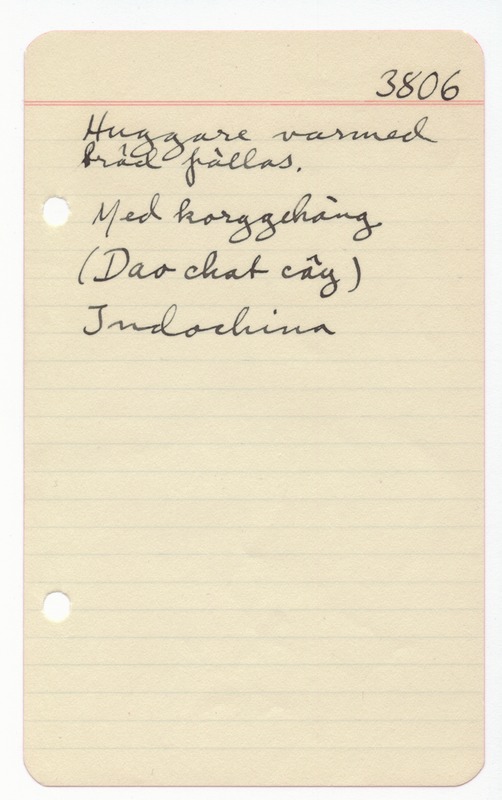 3806
Huggare varmed
träd fällas.
Med korggehäng
(Dao chat cây)
Indochina